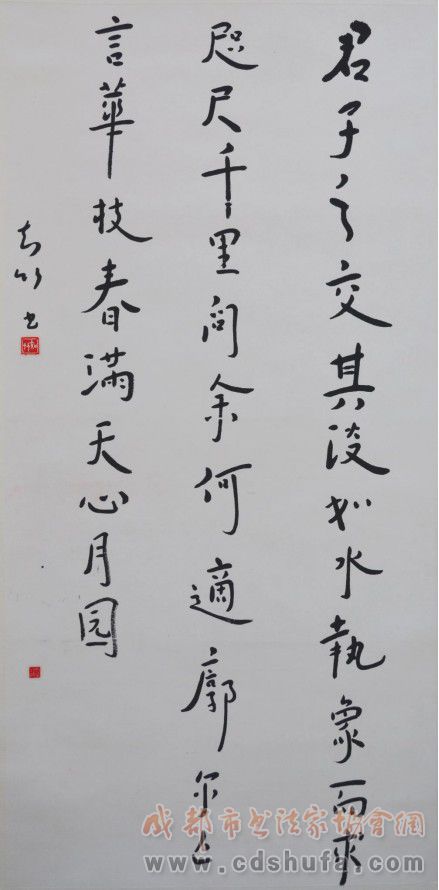 君子之交其淡如水執象而求
咫尺千里问余何適廓尔亡
言華枝春滿天心月圆
书
成都市书法家协會網
www.cdshufa.com